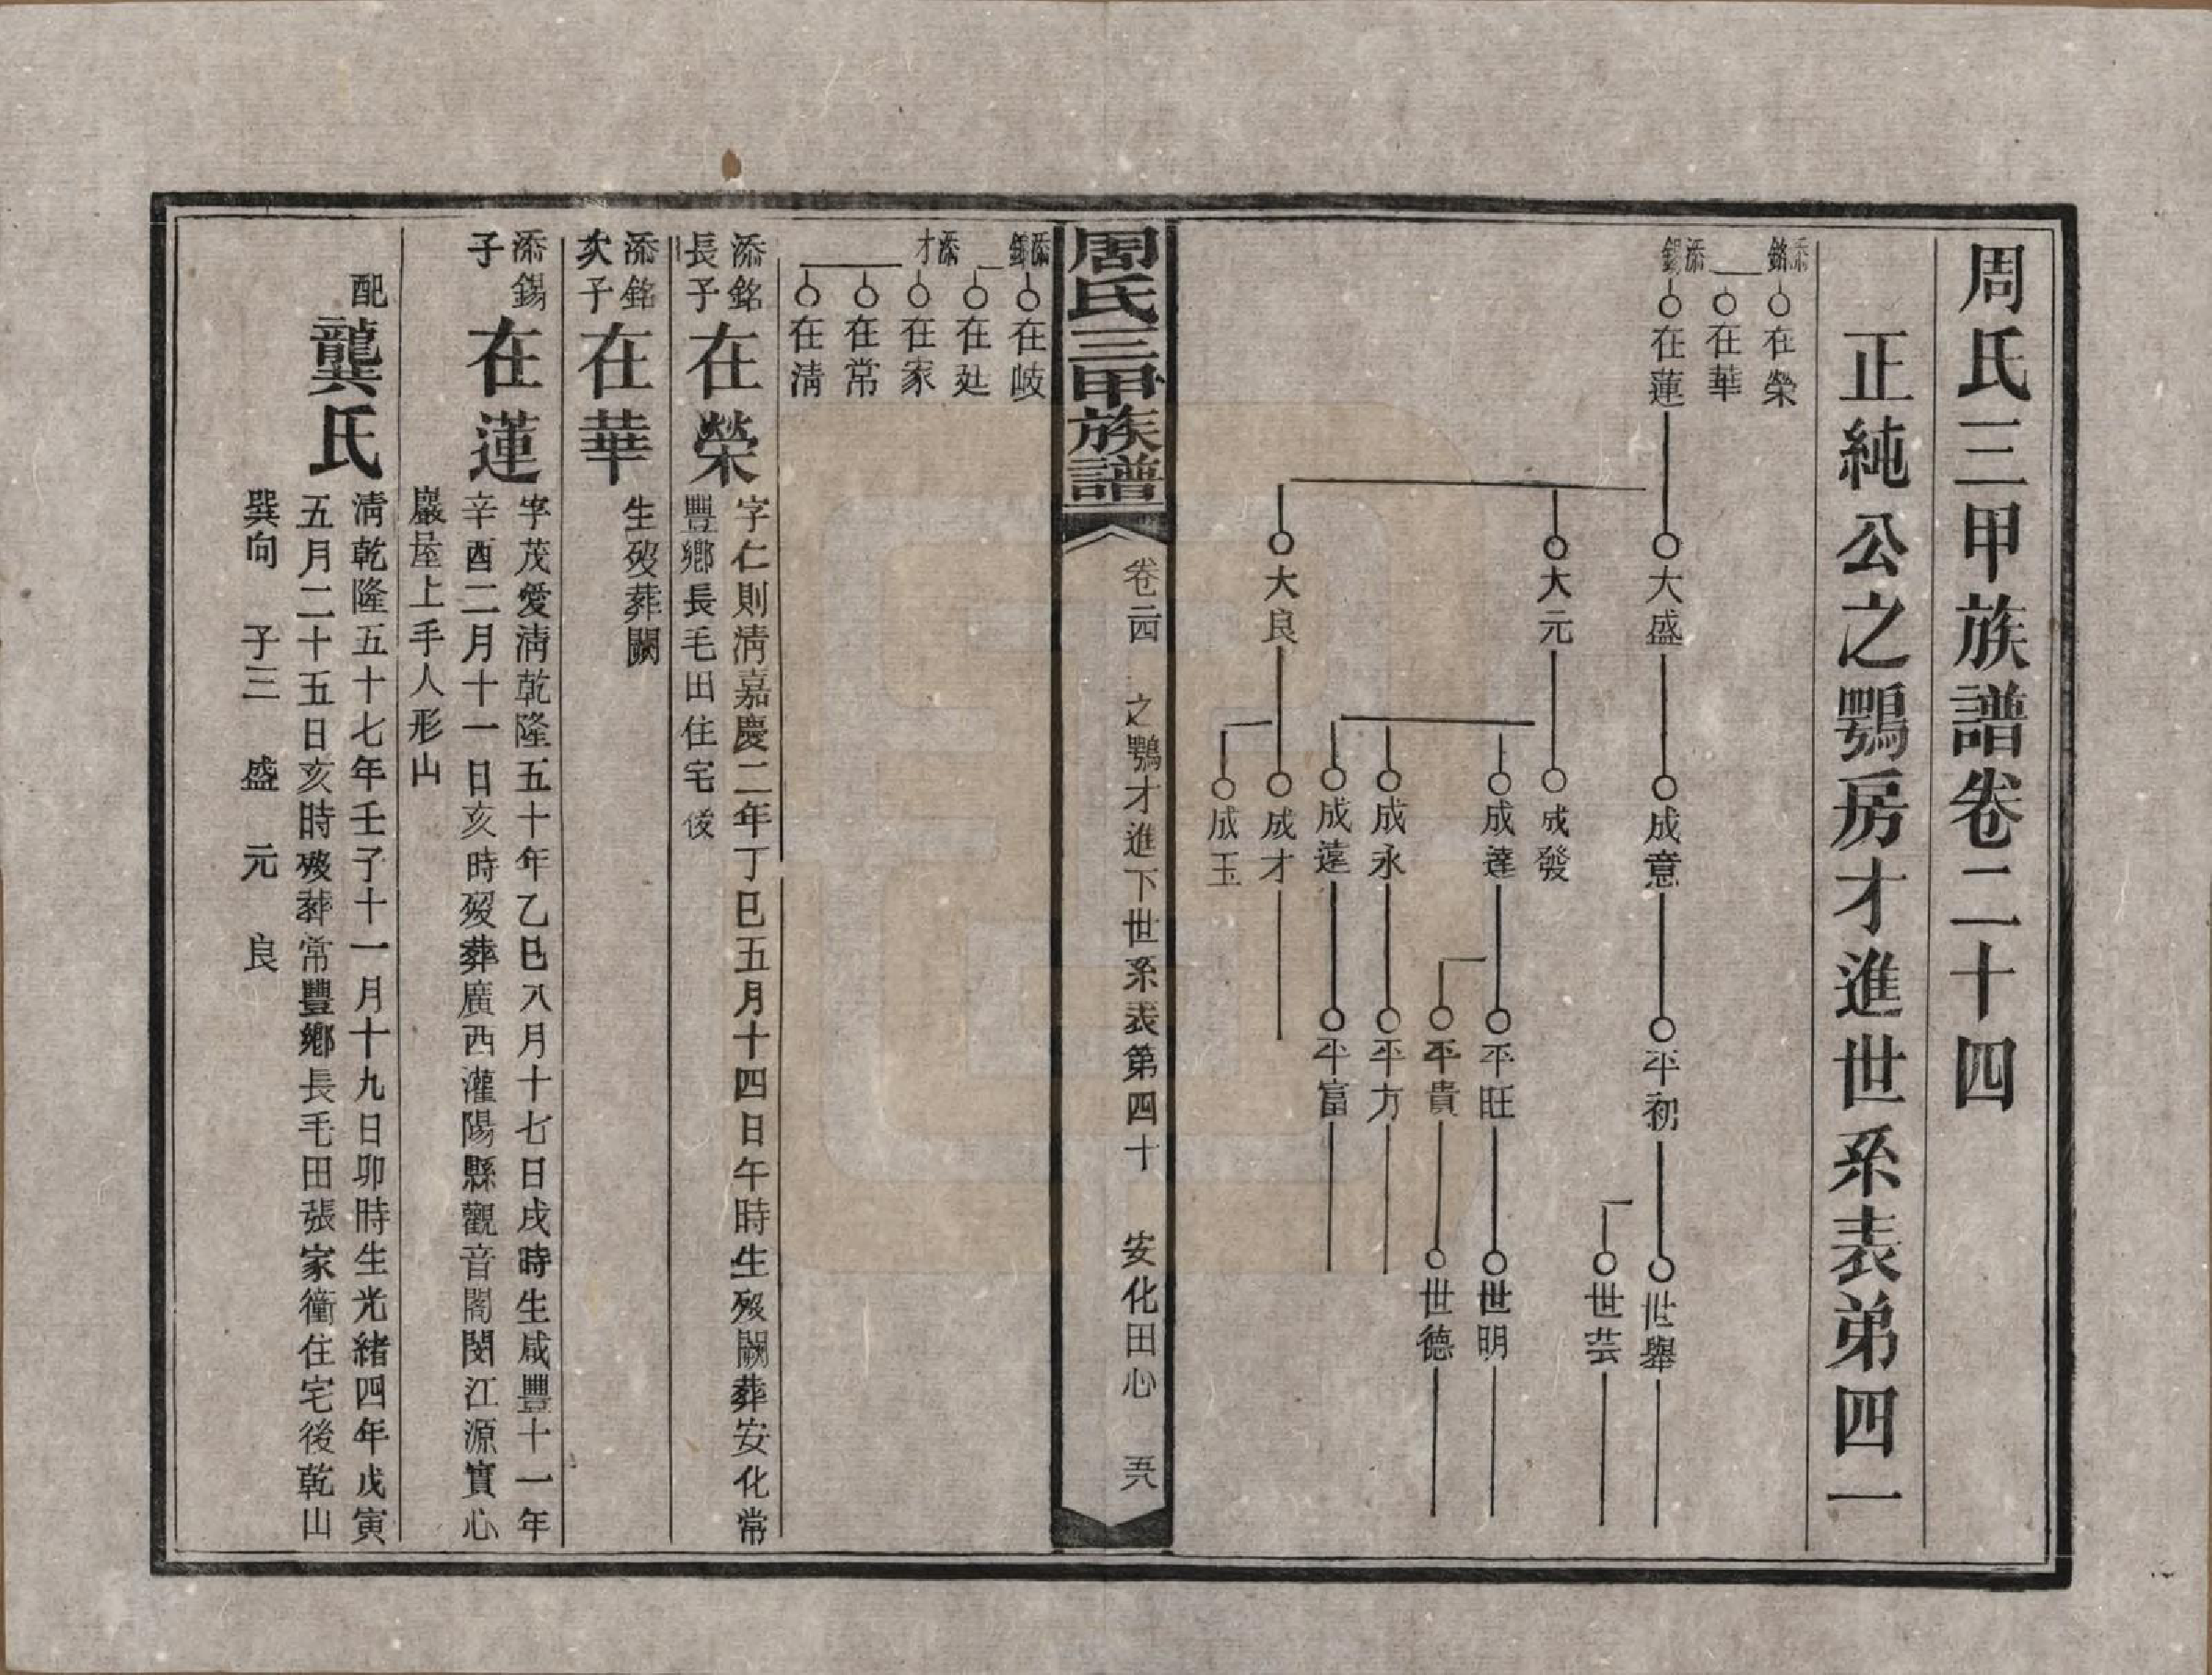 周氏三甲族譜卷二十四
正純公之鶚房才進世系表弟四一
添銘 在榮
在華
添錫 在蓮 大盛 成意 平初 世舉
世芸
大元 成發
成達 平旺 世明
平貴 世德
成永 平方
成遠 平富
大良 成才
成玉
周氏三甲族譜 卷二四 之鶚才進下世系表第四十 安化田心 五八
添 在歧
在廷
添才 在家
在常
在清
添銘長子 在榮 字仁則清嘉慶二年丁巳五月十四日午時生歿闕葬安化常
豐鄉長毛田住宅後
添銘次子 在華 生歿葬闕
添錫子 在蓮 字茂愛清乾隆五十年乙巳八月十七日戌時生咸豐十一年
辛酉二月十一日亥時歿葬廣西灌陽縣觀音閣閔江源實心
巖屋上手人形山
配龔氏 清乾隆五十七年壬子十一月十九日卯時生光緒四年戊寅
五月二十五日亥時歿葬常豐鄉長毛田張家衝住宅後乾山
巽向 子三 盛 元 良